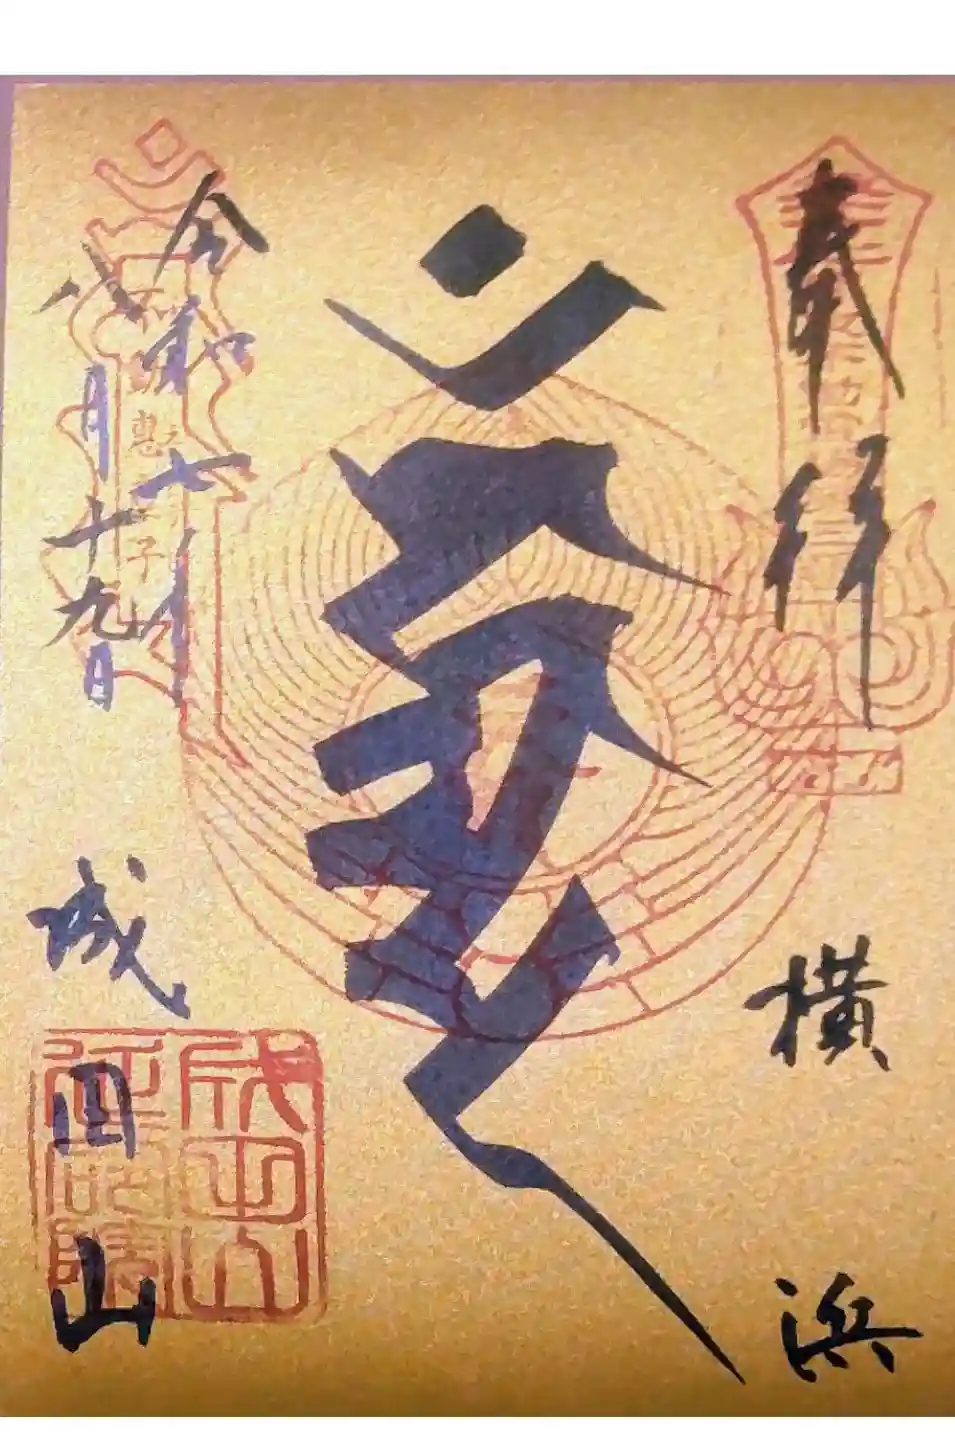 奉拝
横浜
令和七年
八月十九日
成田山
成田山
延命院